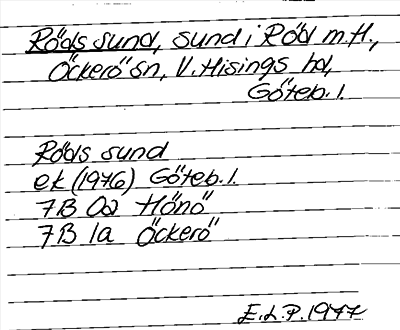 Röds sund, sund i Röd m.H.,
Öckerö sn, V. Hisings hd,
Göteb. l.
Röds sund
ek (1976) Göteb. l.
7B 0a Hönö
7B 1a Öckerö
E.L.P. 1977